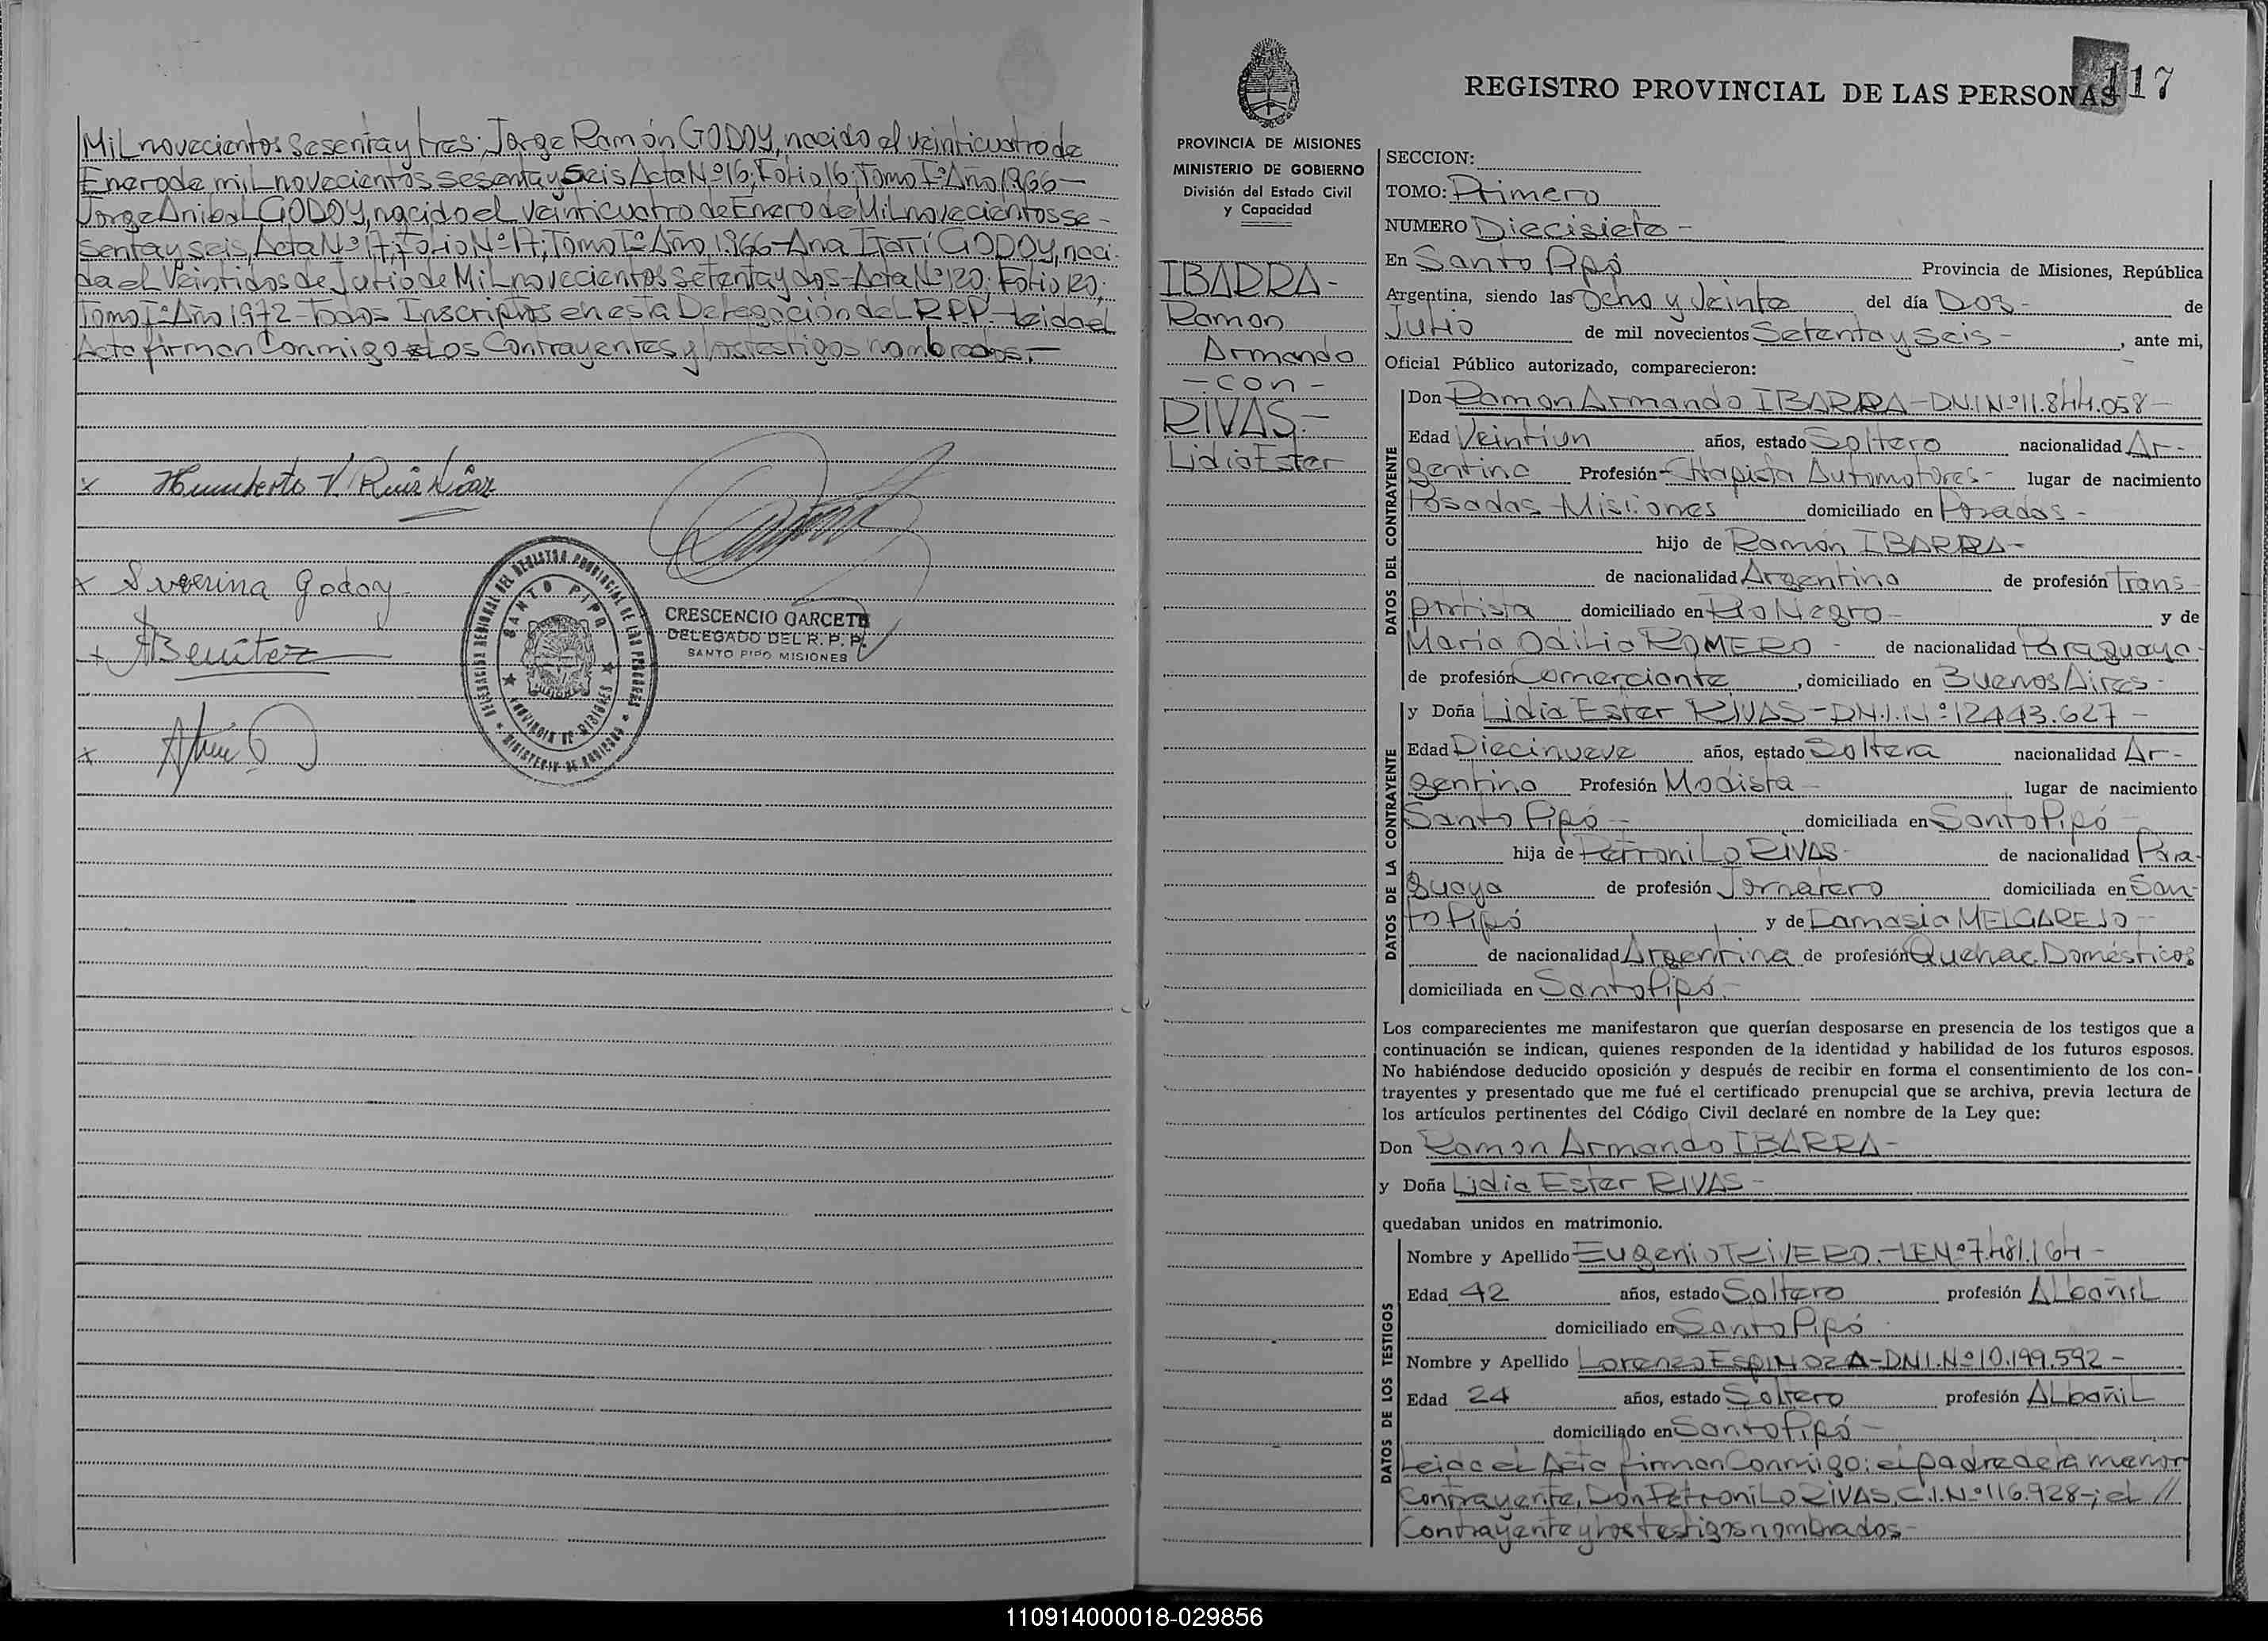 Mil novecientos Sesenta y tres; Jorge Ramón GODOY, nacido el veinticuatro de
Enero de mil novecientos sesenta y seis Acta Nº 16; Folio 16; Tomo Iº Año 1966-
Jorge Anibal GODOY, nacido el Veinticuatro de Enero de Mil novecientos se-
senta y seis, Acta Nº 17; Folio Nº 17; Tomo Iº Año 1966- Ana Itatí GODOY, naci-
da el Veintidos de Julio de Mil novecientos setenta y dos- Acta Nº 120; Folio 120;
Tomo Iº Año 1972- Todos Inscriptos en esta Delegación del R.P.P.- Leida el
Acta firman Conmigo Los Contrayentes y los testigos nombrados.-
x Humberto V. Ruiz Diaz
x Severina Godoy
x Benitez
x
DELEGACION REGIONAL DEL REGISTRO PROVINCIAL DE LAS PERSONAS
SANTO PIPO
PROVINCIA DE MISIONES
MINISTERIO DE GOBIERNO
CRESCENCIO GARCETE
DELEGADO DEL R. P. P.
SANTO PIPO MISIONES
117
REGISTRO PROVINCIAL DE LAS PERSONAS
PROVINCIA DE MISIONES
MINISTERIO DE GOBIERNO
División del Estado Civil
y Capacidad
IBARRA-
Ramon
Armando
-con-
RIVAS.-
Lidia Ester
SECCION:
TOMO: Primero
NUMERO Diecisiete -
En Santo Pipó Provincia de Misiones, República
Argentina, siendo las Ocho y Veinte del día Dos- de
Julio de mil novecientos Setenta y Seis- , ante mi,
Oficial Público autorizado, comparecieron:
DATOS DEL CONTRAYENTE
Don Ramon Armando IBARRA-DNI Nº 11.844.058-
Edad Veintiun años, estado Soltero nacionalidad Ar-
gentina Profesión Chapista Automotores- lugar de nacimiento
Posadas Misiones domiciliado en Posadas-
hijo de Ramón IBARRA-
de nacionalidad Argentina de profesión trans-
portista domiciliado en Rio Negro- y de
María Odilia ROMERO - de nacionalidad Paraguaya-
de profesión Comerciante , domiciliado en Buenos Aires-
DATOS DE LA CONTRAYENTE
y Doña Lidia Ester RIVAS-DN.I.Nº 12443.627-
Edad Diecinueve años, estado Soltera nacionalidad Ar-
gentina Profesión Modista- lugar de nacimiento
Santo Pipó- domiciliada en Santo Pipó-
hija de Petronilo RIVAS- de nacionalidad Para-
guaya de profesión Jornalero domiciliada en San-
to Pipó y de Damasia MELGAREJO-
de nacionalidad Argentina de profesión Quehac. Domésticos
domiciliada en Santo Pipó.-
Los comparecientes me manifestaron que querían desposarse en presencia de los testigos que a
continuación se indican, quienes responden de la identidad y habilidad de los futuros esposos.
No habiéndose deducido oposición y después de recibir en forma el consentimiento de los con-
trayentes y presentado que me fué el certificado prenupcial que se archiva, previa lectura de
los artículos pertinentes del Código Civil declaré en nombre de la Ley que:
Don Ramon Armando IBARRA-
y Doña Lidia Ester RIVAS-
quedaban unidos en matrimonio.
DATOS DE LOS TESTIGOS
Nombre y Apellido Eugenio RIVERO.-LE Nº 7.481.164-
Edad 42 años, estado Soltero profesión Albañil
domiciliado en Santo Pipó
Nombre y Apellido Lorenzo ESPINOZA-DNI.Nº 10.199.592-
Edad 24 años, estado Soltero profesión Albañil
domiciliado en Santo Pipó-
Leida el Acta firman Conmigo: el padre de la menor
Contrayente, Don Petronilo RIVAS, C.I.Nº 116.928-; el //
Contrayente y los testigos nombrados-
110914000018-029856